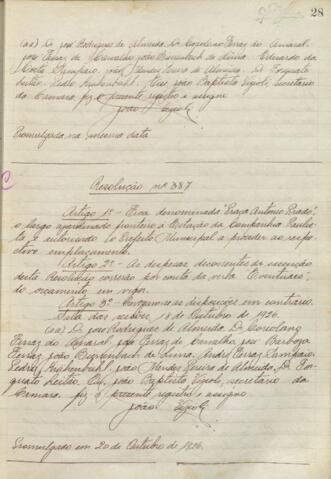 28
(aa) Dr. José Rodrigues de Almeida, Dr. Coriolano Ferraz do Amaral,
José Ferraz de Carvalho, João Buzenbech de Lima, Eduardo da
Costa Sampaio, João Mendes Pereira de Almeida, D. Torquato
Leitão, Pedro Krahenbuhl. Eu, João Baptista Vizioli, secretario
da Camara, fiz o presente registro e assigno
João Vizioli
Promulgada na mesma data
Resolução nº 387
Artigo 1º - Fica denominada "Praça Antonio Prado",
o largo ajardinado fronteiro á Estação da Companhia Paulis-
ta e autorizado o Prefeito Municipal a proceder ao respe-
ctivo emplacamento.
Artigo 2º - As despezas decorrentes da execução
desta Resolução correrão por conta da verba "Eventuaes",
do orçamento em vigor.
Artigo 3º - Revogam-se as disposições em contrario.
Sala das sessões, 18 de Outubro de 1926.
(aa) Dr. José Rodrigues de Almeida, Dr. Coriolano
Ferraz do Amaral, José Ferraz de Carvalho, José Barboza
Ferraz, João Buzenbech de Lima, André Ferraz Sampaio,
Pedro Krahenbuhl, João Mendes Pereira de Almeida, D. Tor-
quato Leitão. Eu, João Baptista Vizioli, secretario da
Camara, fiz o presente registro e assigno
João Vizioli
Promulgada em 20 de Outubro de 1926.